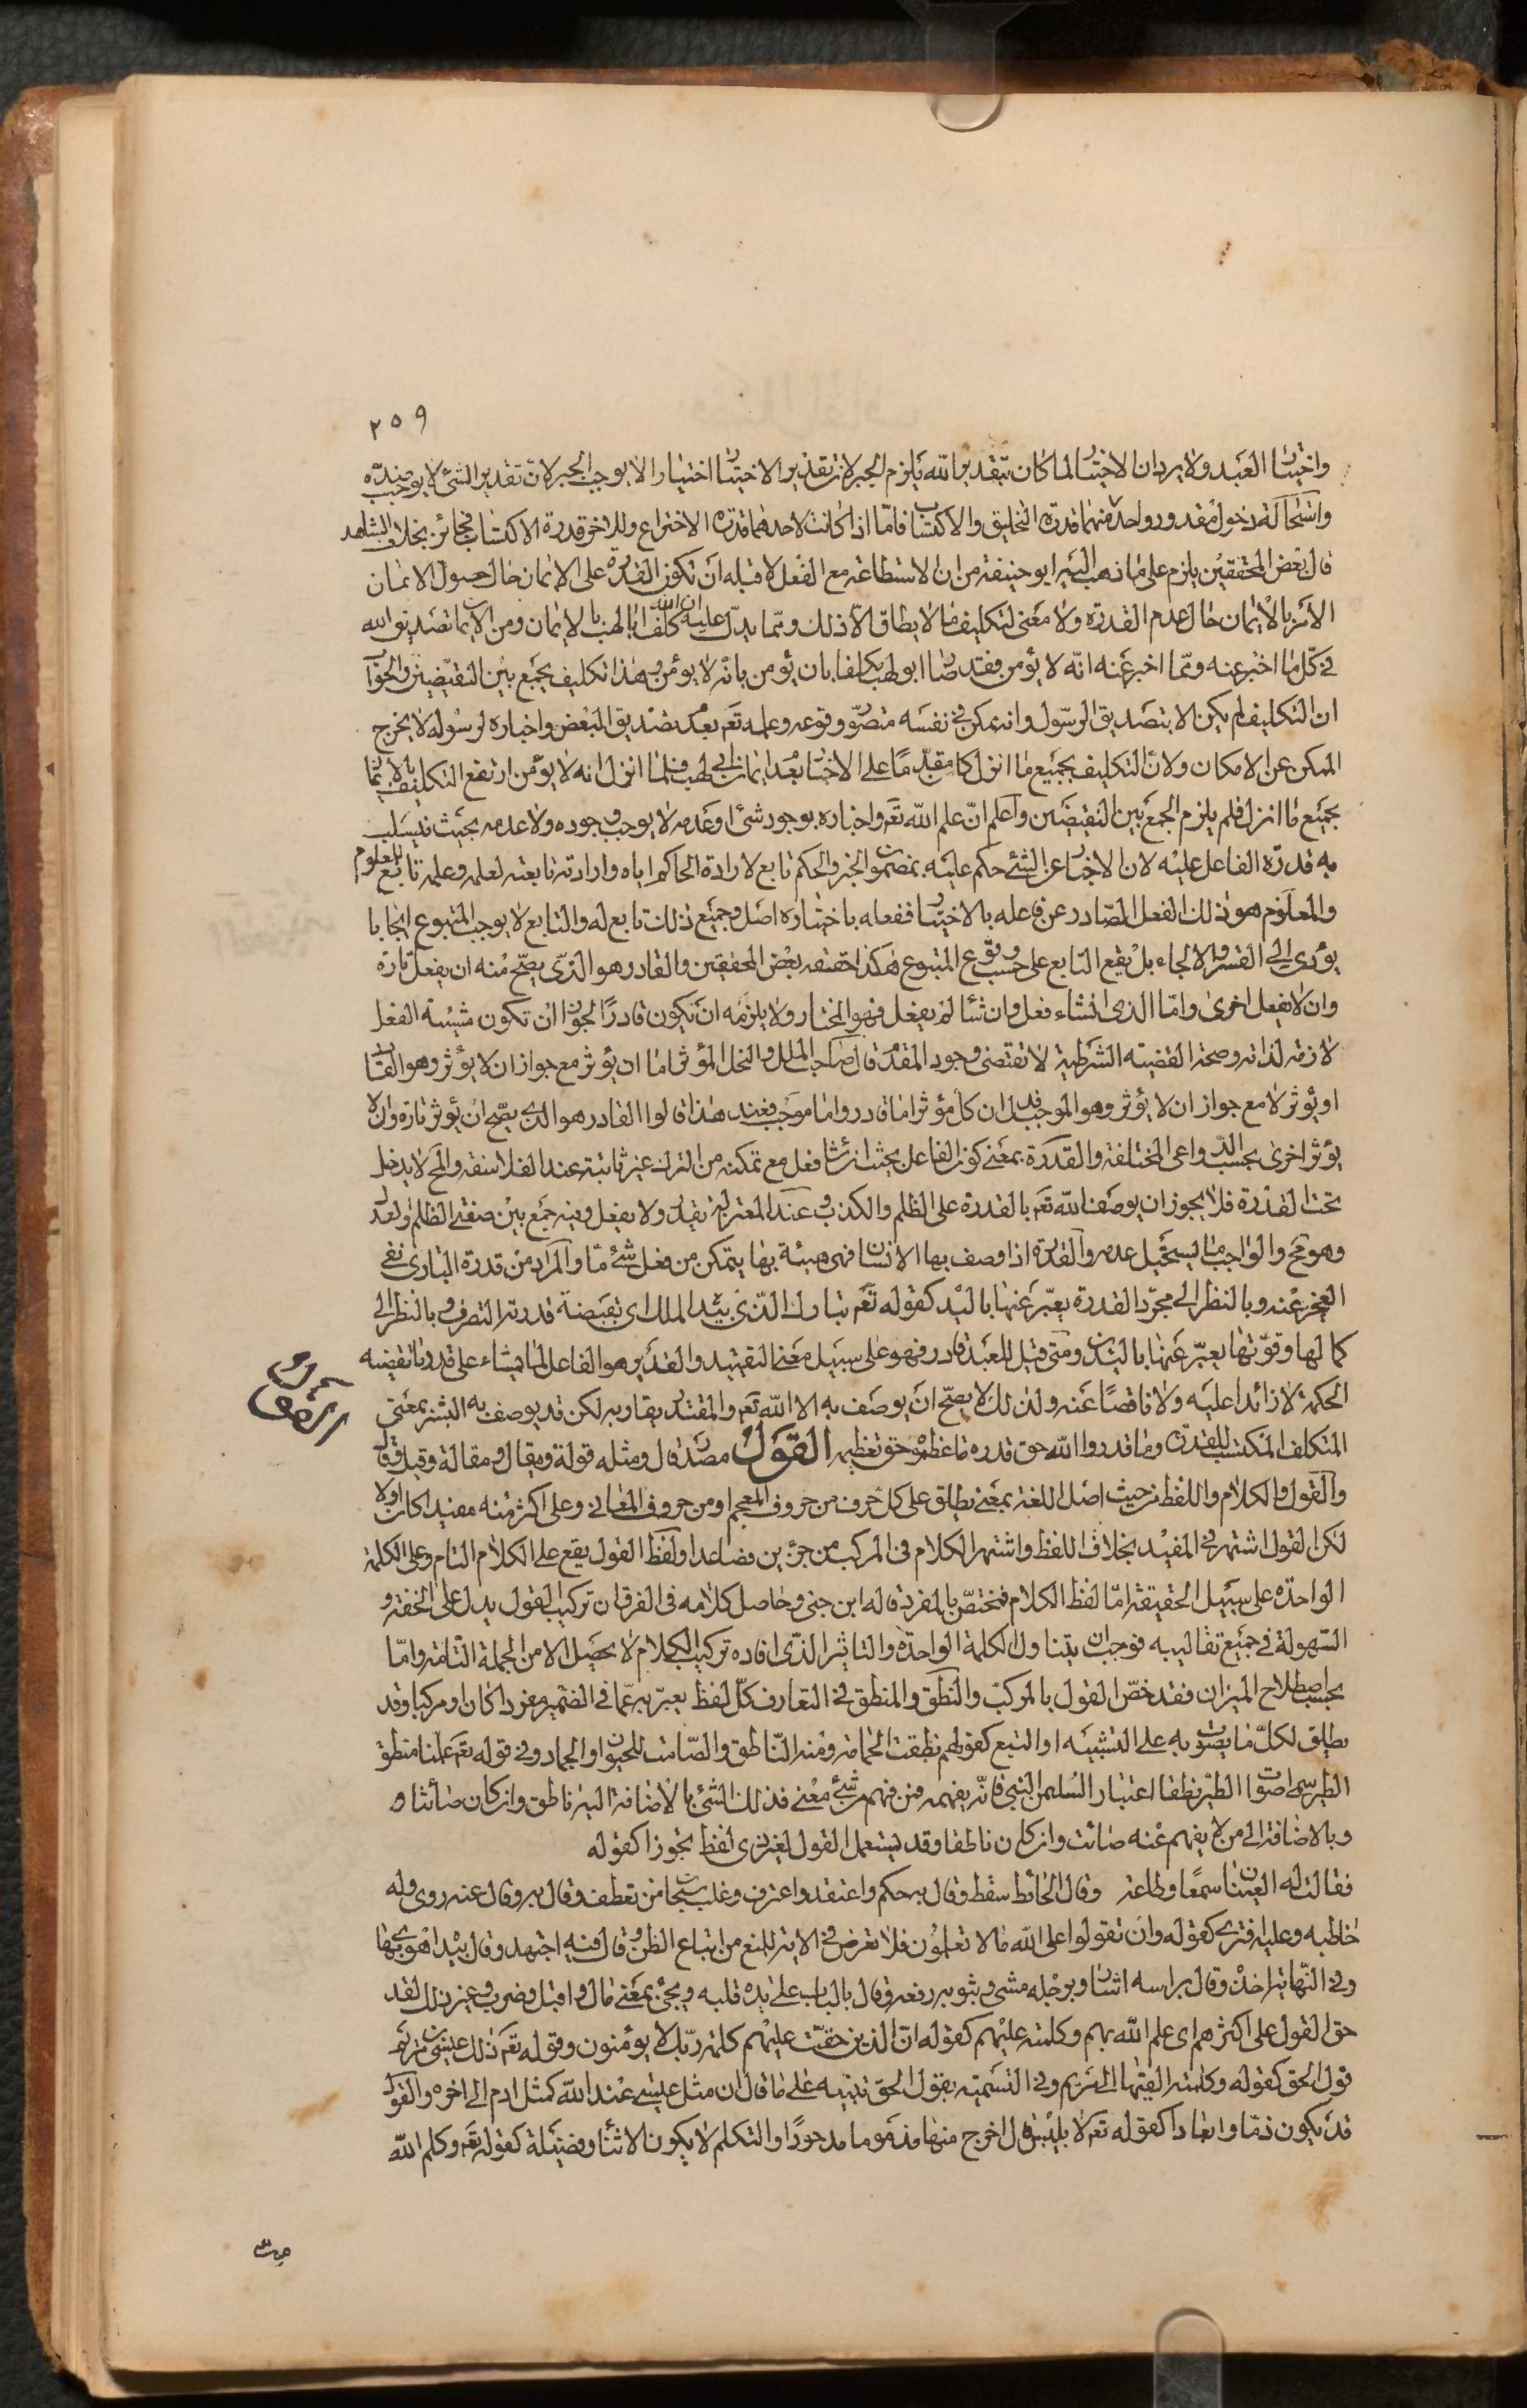 ٢٥٩
واختيار العبد ولا يرد ان الاختيار لما كان بتقدير الله يلزم الجبر لان تقدير الاختيار اختيارا لا يوجب الجبر لان تقدير الشئ لا يوجب ضده
واستحالة دخول مقدور واحد منهما قدرة التخليق والاكتساب فامّا اذا كانت لاحدهما قدرة الاختراع وللاخر قدرة الاكتساب فجائز بخلاف الشاهد
قال بعض المحققين يلزم على ما ذهب اليه ابو حنيفة من ان الاستطاعة مع الفعل لا قبله ان تكون القدرة على الايمان حال حصول الايمان
الامر بالايمان حال عدم القدرة ولا معنى لتكليف ما لا يطاق الا ذلك وممّا يدل عليه ان الله كلف ابا لهب بالايمان ومن الايمان تصديق الله
في كلّ ما اخبر عنه وممّا اخبر عنه انّه لا يؤمن فقد صار ابو لهب مكلفا بان يؤمن بانه لا يؤمن وهذا تكليف بجمع بين النقيضين والجواب
ان التكليف لم يكن الا بتصديق الرسول وانه ممكن في نفسه متصور وقوعه وعلمه تعم بعدم تصديق البعض واخباره لرسوله لا يخرج
الممكن عن الامكان ولان التكليف بجميع ما انزل كان مقدّما على الاخبار بعدم ايمان ابي لهب فلما انزل انه لا يؤمن ارتفع التكليف بالايمان
بجميع ما انزل فلم يلزم الجمع بين النقيضين واعلم انّ علم الله تعم واخباره بوجود شئ او عدمه لا يوجب وجوده ولا عدمه بحيث ينسلب
به قدرة الفاعل عليه لان الاخبار عن الشئ حكم عليه بمضمون الخبر والحكم تابع لارادة الحاكم اياه وارادته تابعة لعلمه وعلمه تابع للمعلوم
والمعلوم هو ذلك الفعل الصادر عن فاعله بالاختيار ففعله باختياره اصل وجميع ذلك تابع له والتابع لا يوجب المتبوع ايجابا
يؤدي الى القسر والالجاء بل يقع التابع على حسب وقوع المتبوع هكذا حققه بعض المحققين والقادر هو الذي يصح منه ان يفعل تارة
وان لا يفعل اخرى وامّا الذي ان شاء فعل وان شاء لم يفعل فهو المختار ولا يلزمه ان يكون قادرًا لجواز ان تكون مشيئة الفعل
لازمة لذاته وصحة القضية الشرطية لا تقتضي وجود المقدم قال صاحب الملل والنحل المؤثر اما ان يؤثر مع جواز ان لا يؤثر وهو القادر
او يؤثر لا مع جواز ان لا يؤثر وهو الموجب فدل ان كل مؤثر اما قادر واما موجب فعند هذا قالوا القادر هو الذي يصح ان يؤثر تارة وان لا
يؤثر اخرى بحسب الدواعي المختلفة والقدرة بمعنى كون الفاعل بحيث ان شاء فعل مع تمكنه من الترك غير ثابتة عند الفلاسفة والمح لا يدخل
تحت القدرة فلا يجوز ان يوصف الله تعم بالقدرة على الظلم والكذب وعند المعتزلة يقدر ولا يفعل وفيه جمع بين صفتي الظلم والعدل
وهو مح والواجب ما يستحيل عدمه والقدرة اذا وصف بها الانسان فهي هيئة بها يتمكن من فعل شئ ما والمراد من قدرة البارى نفي
العجز عنه وبالنظر الى مجرّد القدرة يعبّر عنها باليد كقوله تعم تبارك الذي بيده الملك اي بقبضة قدرته التصرف وبالنظر الى
كمالها وقوّتها يعبّر عنها باليدين ومتى قيل للعبد قادر فهو على سبيل معنى التقييد والقدير هو الفاعل لما يشاء على قدر ما تقتضيه
الحكمة لا زائدا عليه ولا ناقصًا عنه ولذلك لا يصحّ ان يوصف به الا الله تعم والمقتدر يقاربه لكن قد يوصف به البشر بمعنى
القول
المتكلف المكتسب للقدرة وما قدروا الله حق قدره ما عظموه حق تعظيمه القول مصدر قال ومثله قولة ومقال ومقالة وقيل وقال
والقول والكلام واللفظ من حيث اصل اللغة بمعنى يطلق على كل حرف من حروف المعجم او من حروف المعاني وعلى اكثر منه مفيدا كان او لا
لكن القول اشتهر في المفيد بخلاف اللفظ واشتهر الكلام في المركب من جزءين فصاعدا ولفظ القول يقع على الكلام التام وعلى الكلمة
الواحدة على سبيل الحقيقة امّا لفظ الكلام فمختصّ بالمفرد قاله ابن جني وحاصل كلامه في الفرق ان تركيب القول يدل على الخفة و
السّهولة في جميع تقاليبه فوجب ان يتناول الكلمة الواحدة والتاثير الذي افاده تركيب الكلام لا يحصل الا من الجملة التامة وامّا
بحسب اصطلاح الميزان فقد خصّ القول بالمركب والنطق والمنطق في التعارف كلّ لفظ يعبّر به عمّا في الضمير مفردا كان او مركبا وقد
يطلق لكلّ ما يصوّت به على التشبيه او التبع كقولهم نطقت الحمامة ومنه الناطق والصّامت للحيوان والجماد وفي قوله تعم علمنا منطق
الطير سمى اصوات الطير نطقا اعتبار السليمن النبي فانّه يفهمه فمن فهم من شئ معنى فذلك الشئ بالاضافة اليه ناطق وان كان صامتا و
وبالاضافة الى من لا يفهم عنه صامت وان كان ناطقا وقد يستعمل القول لغير ذي لفظ تجوزا كقوله
فقالت له العينان سمعًا وطاعة وقال الحائط سقط وقال به حكم واعتقد واعترف وغلب ومنه سبحان من تعطف وقال به وقال عنه روى وله
خاطبه وعليه افترى كقوله وان تقولوا على الله ما لا تعلمون فلا تعرض في الاية للمنع من اتباع الظن وقال فيه اجتهد وقال بيده اهوى بها
وفي النهاية اخذ وقال براسه اشار وبرجله مشى وبثوبه رفعه وقال بالباب على يده قلبه ويجئ بمعنى مال واقبل وضرب وغير ذلك لقد
حق القول على اكثرهم اي علم الله بهم وكلمته عليهم كقوله انّ الذين حقّت عليهم كلمة ربّك لا يؤمنون وقوله تعم ذلك عيسى بن مريم
قول الحق كقوله وكلمته القيها الى مريم وفي التسمية بقول الحق تنبيه على ما قال ان مثل عيسى عند الله كمثل ادم الى اخره والقول
قد يكون ذمّا وابعادا كقوله تعم لابليس قال اخرج منها مذموما مدحورًا والتكلم لا يكون الا ثناء وفضيلة كقوله تعم وكلم الله